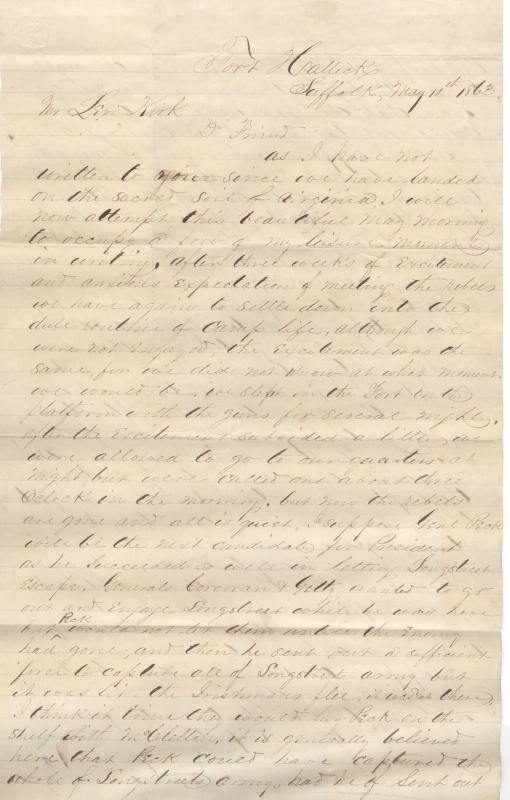 Fort Halleck
Suffolk, May 10th 1863.
Mr Levi Kirk
Dr Friend
as I have not
written to you since we have landed
on the sacred soil of Virginia, I will
now attempt this beautiful May morning
to occupy a few of my leisure moments
in writing, after three weeks of Excitement
and anxious Expectation of meeting the rebels
we have again to settle down into the
dull routine of Camp life, although we
were not engaged, the Excitement was the
same, for we did not know at what moment
we would be. we slept in the Fort on the
platform with the guns for several nights,
after the Excitement subsided a little we
were allowed to go to our quarters at
night but were called out about three
Oclock in the morning, but now the rebels
are gone and all is quiet. I suppose Genl Peck
will be the next candidate for President
as he succeeded so well in letting Longstreet
Escape. Generals Corcoran & Getty wanted to go
out and Engage Longstreet while he was here
but Peck would not let them untill the Enemy
had gone, and then he sent out a sufficient
force to capture all of Longstreets army but
it was like the Irishmans flee, it wasnt there,
I think it time they would lay Peck on the
shelf with McClellan, it is generally believed
here that Peck could have captured the
whole of Longstreets army, had he of sent out